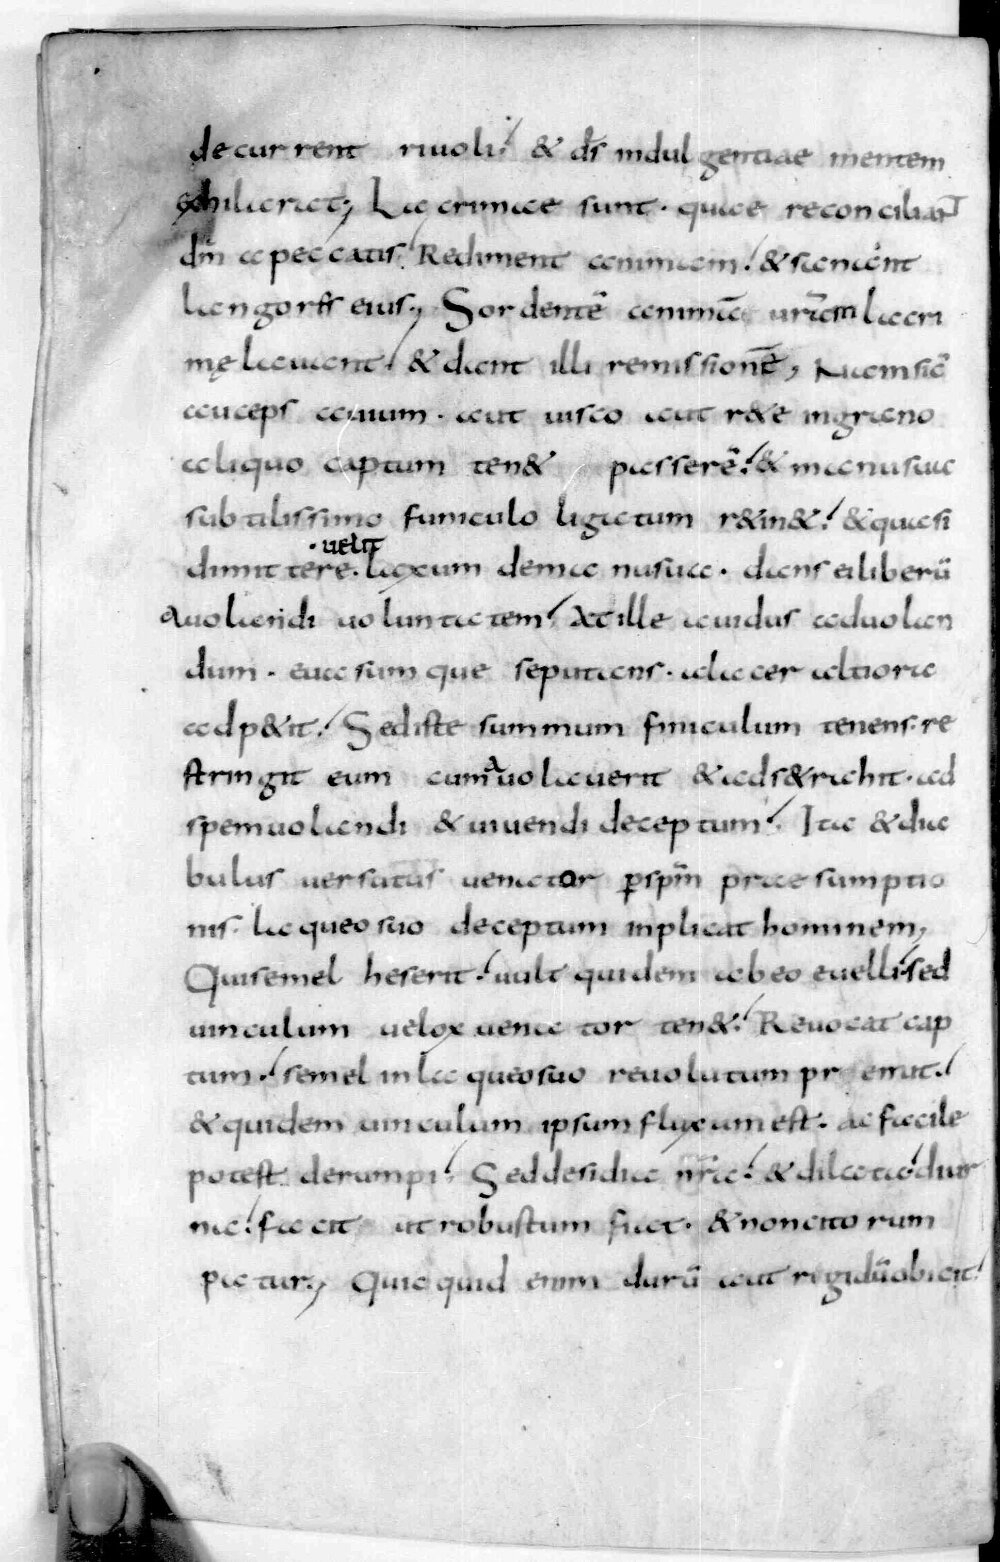 decurrent riuoli. & ds̄ indulgentiae mentem
exhilarat; Lacrimae sunt. quae reconciliant
dm̄ a peccatis. Rediment animam. & sanant
langores eius; Sordentē animā urām lacri
mę lauant. & dant illi remissionē; Nam sic̄
auceps auium. aut uisco aut r&e ingrano
aliquo captum ten& passerē. & manu sua
subtilissimo funiculo ligatum r&in&. & quasi
dimittere uelit. laxum dem̄a nusua. dans ei liberū
auolandi uoluntatem. At ille auidus aduolan
dum. euasumque se putans. alacer altiora
adp&it. Sed iste summum finiculum tenens. re
stringit eum cum auolauerit & ad s& rahit. ad
spem uolandi & uiuendi deceptum. Ita & dia
bulus uersatus uenator ꝑ spm̄ praesumptio
nis. laqueo suo deceptum inplicat hominem;
Qui semel heserit. uult quidem ab eo euelli. sed
uinculum uelox uenator ten&. Reuocat cap
tum. semel in laqueo suo reuolutum premit.
& quidem uinculum ipsum fluxum est. ac facile
potest derumpi. Sed desidia nr̄a. & dilatio diur
na. facit ut robustum fiat. & non cito rum
patur; Quicquid enim durū aut rigidū obicit.